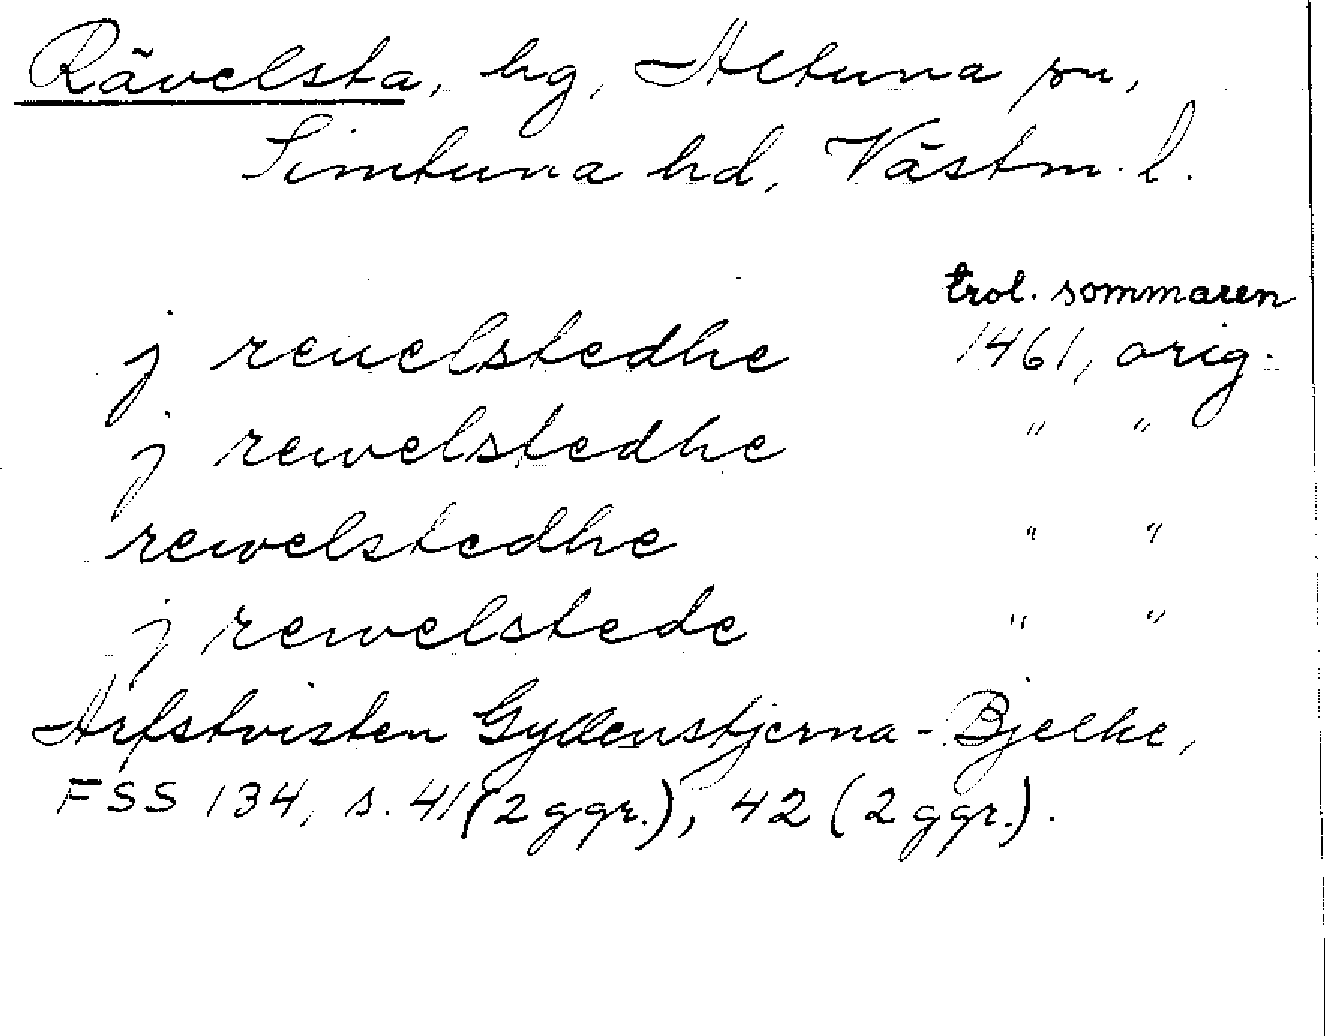 Rävelsta, hg, Altuna sn,
Simtuna hd, Västm. l.
trol. sommaren
j reuelstedhe 1461, orig.
j rewelstedhe " "
rewelstedhe " "
j rewelstede " "
Arfstvisten Gyllenstjerna-Bjelke,
FSS 134, s. 41 (2 ggr.), 42 (2 ggr.).